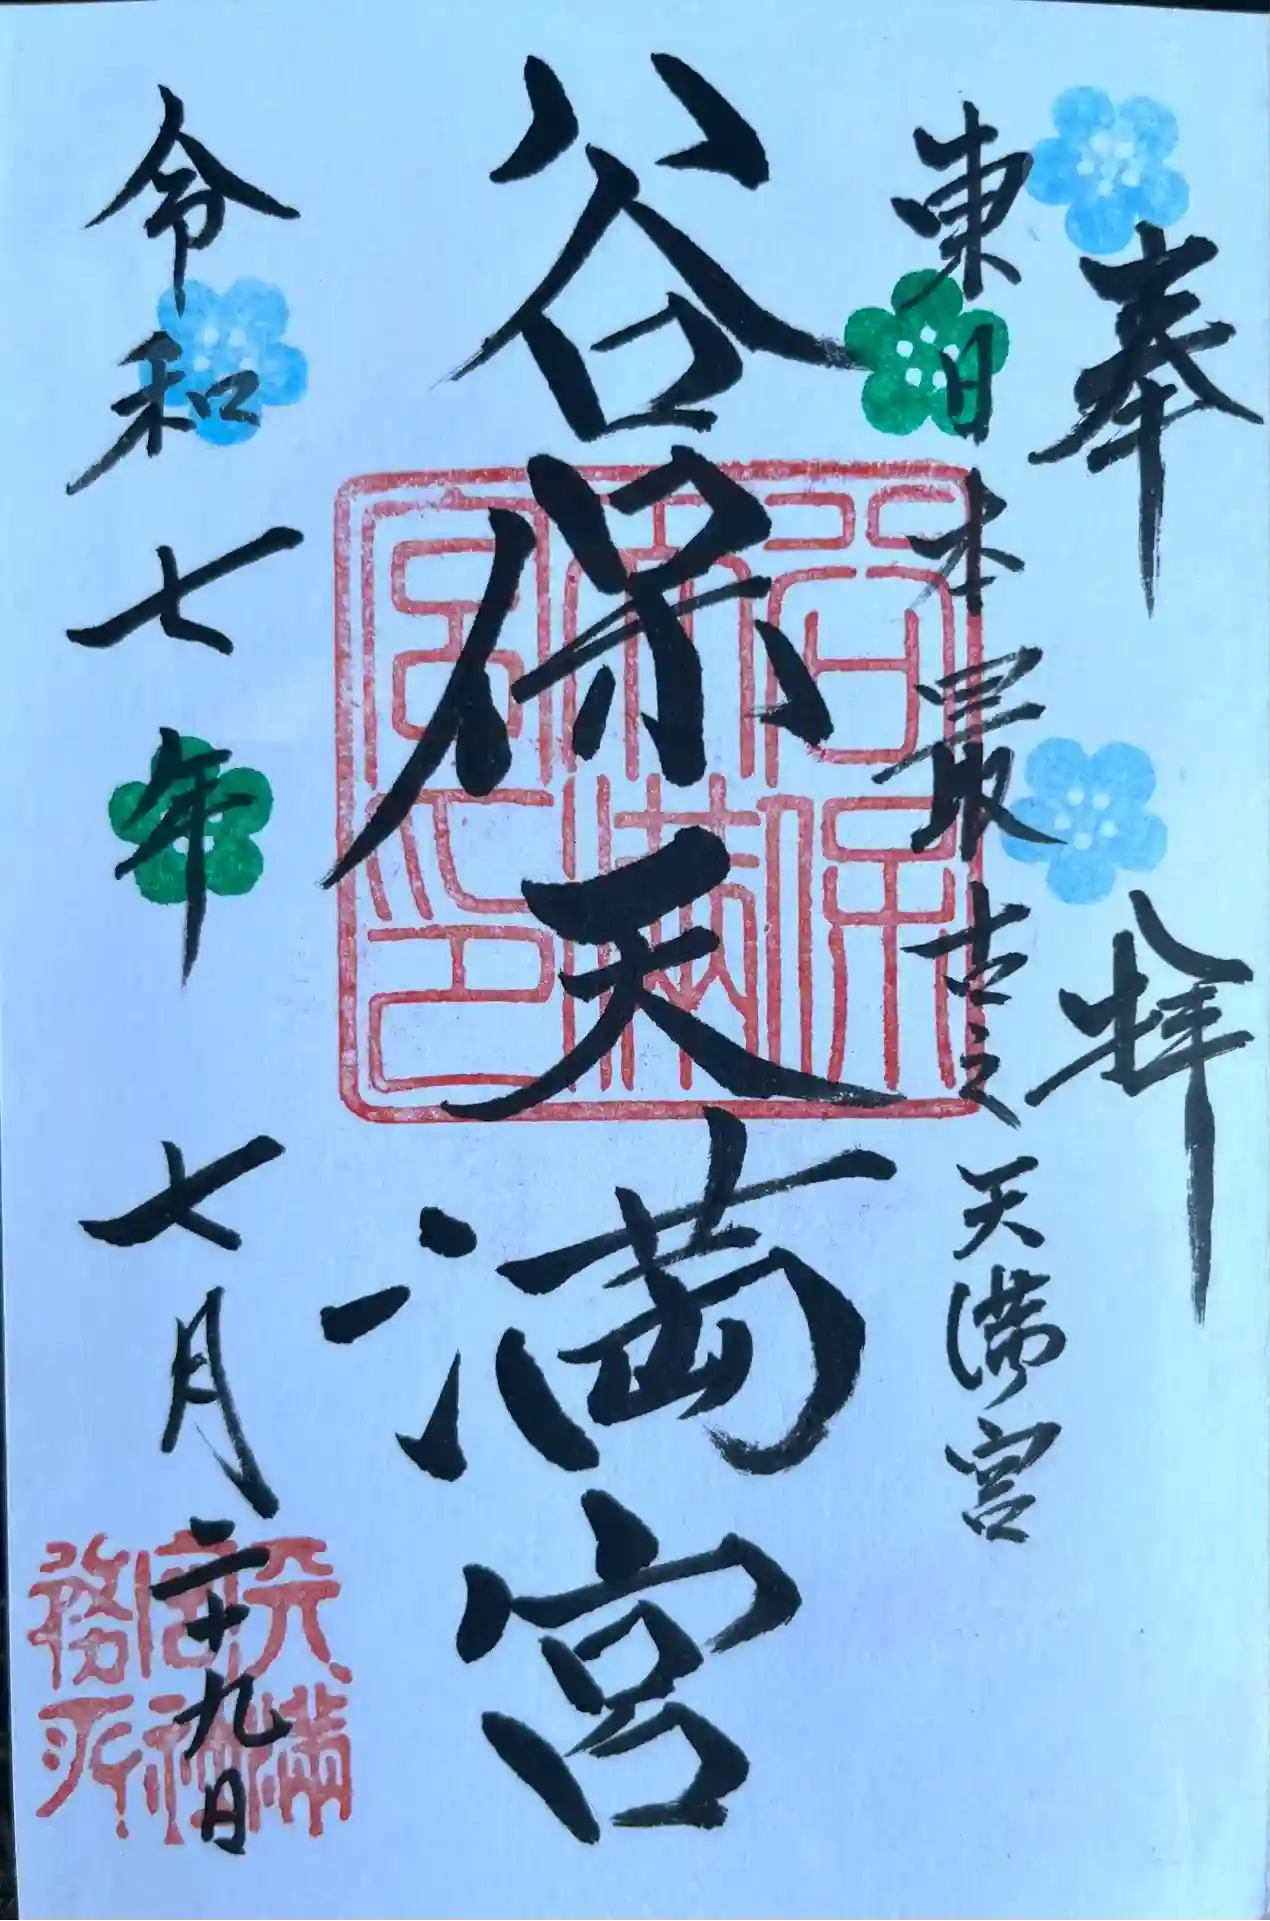 奉拝
東日本最古之天満宮
谷保天満宮
谷保
天満
宮印
令和七年七月二十九日
天満
宮社
務所